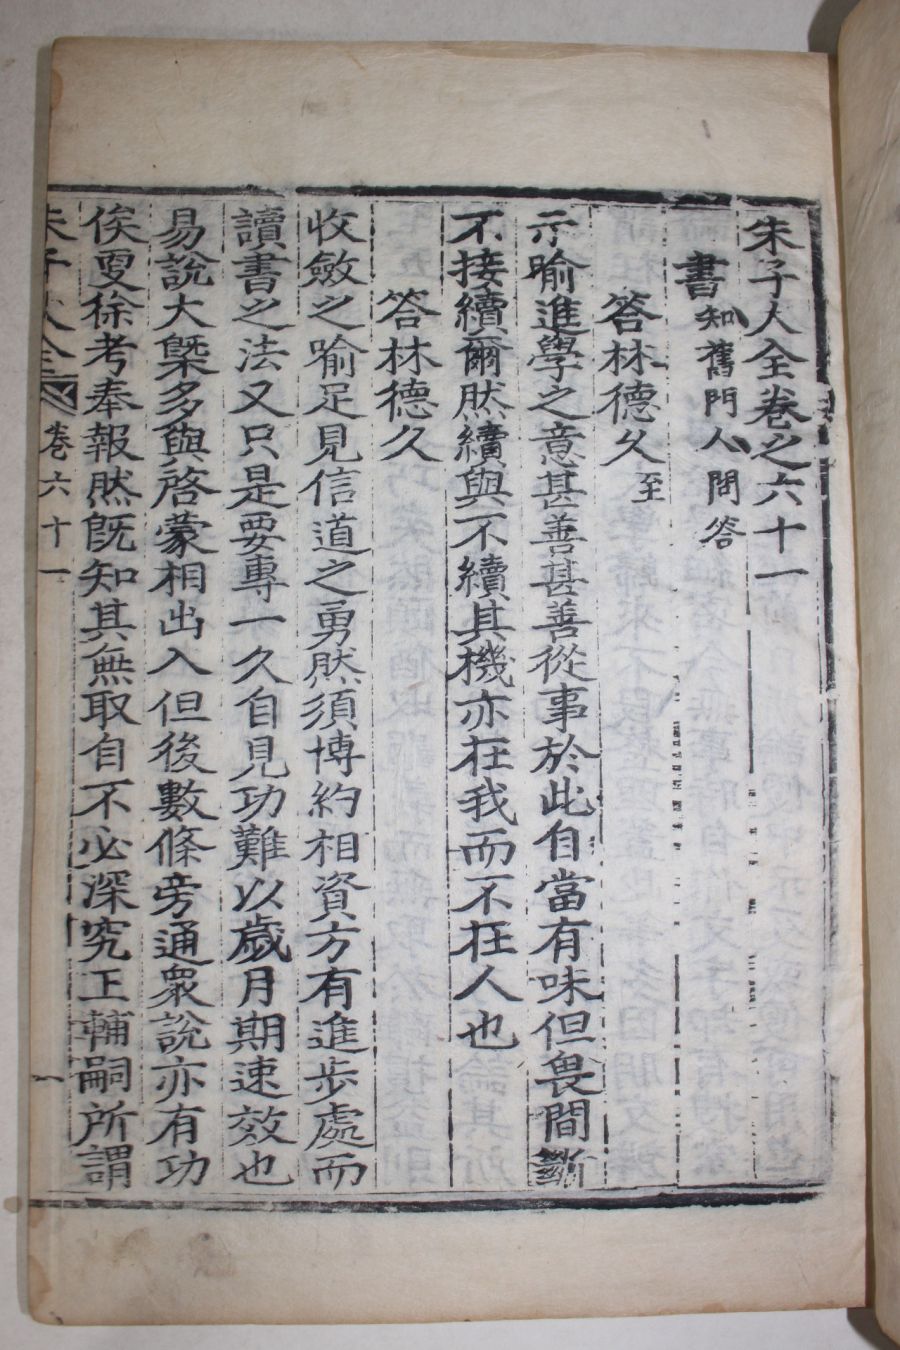 朱子大全卷之六十一
書 知舊門人問答
答林德久 至
示喻進學之意甚善甚善從事於此自當有味但畏間斷
不接續爾然續與不續其機亦在我而不在人也
答林德久
收斂之喻足見信道之勇然須博約相資方有進步處而
讀書之法又只是要專一久自見功難以歲月期速效也
易說大槩多與啓蒙相出入但後數條旁通衆說亦有功
俟更徐考奉報然旣知其無取自不必深究正輔嗣所謂
朱子大全 卷六十一 一